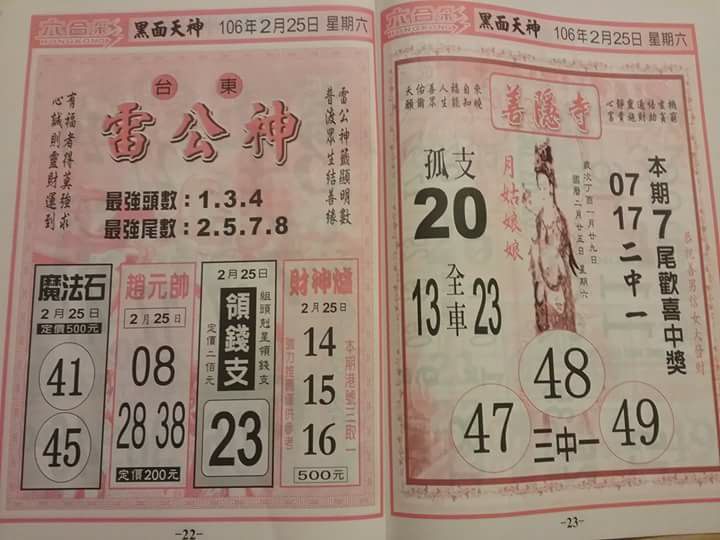 六合彩
HONGKONG
黑面天神
106年2月25日 星期六
台東
雷公神
雷公神籤顯明數
普波眾生結善緣
有福者得莫強求
心誠則靈財運到
最強頭數：1.3.4
最強尾數：2.5.7.8
魔法石
2月25日
定價500元
41
45
趙元帥
2月25日
08
28 38
定價200元
2月25日
領錢支
組頭剋星領錢支
定價二佰元
23
財神爐
2月25日
14
15
16
本期港號三取一
強力推薦僅供參考
500元
-22-
六合彩
HONGKONG
黑面天神
106年2月25日 星期六
善隱寺
天佑善人福自來
願爾眾生能知曉
心靜靈通
孤支
20
全車
13 23
月姑娘娘
歲次丁酉一月廿九日
國曆二月廿五日 星期六
本期7尾歡喜中獎
07
17
二中一
恭祝善男信女大發財
48
47
49
三中一
-23-